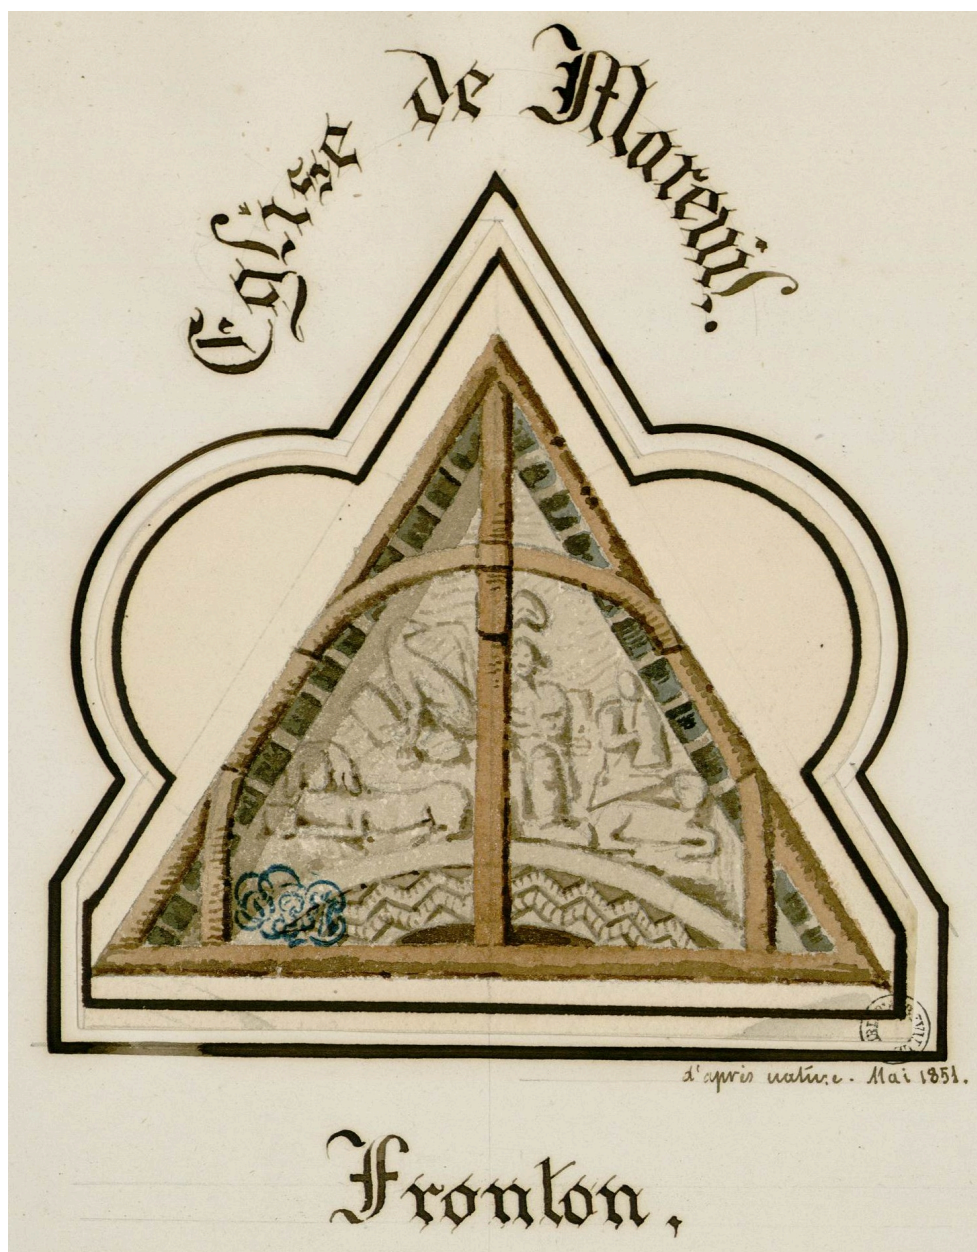 Eglise de Mareuil.
d'après nature. Mai 1851.
Fronton,